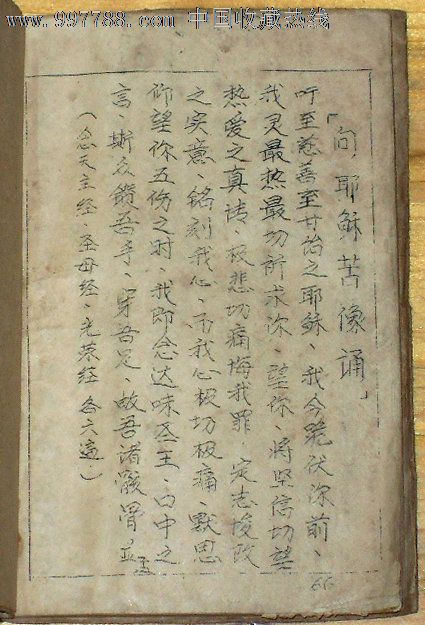 www.997788.com 中国收藏热线
「向耶稣苦像诵」
吁至慈善至甘饴之耶稣、我今跪伏深前、
我灵最热最切祈求你、望你、将坚信切望
热爱之真情、极悲切痛悔我罪 定志悛改
之实意、铭刻我心、而我心极切极痛、默思
仰望你五伤之时、我即念达味圣王、口中之
言、斯众鑽吾手、穿吾足、故吾诸骸骨並
(念天主经、圣母经、光荣经各六遍、)
66